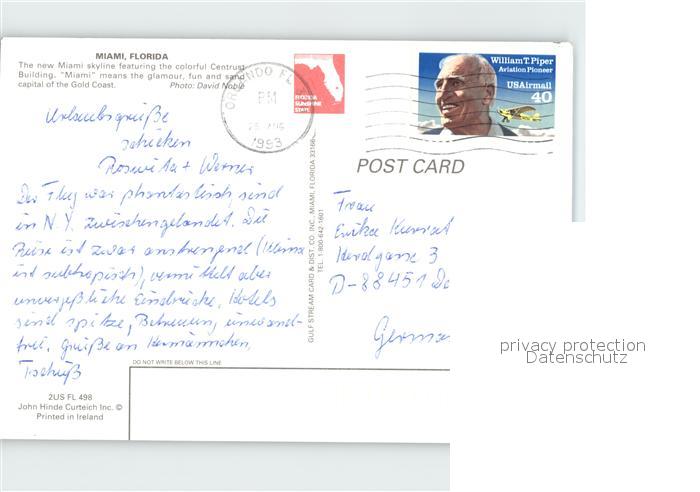 MIAMI, FLORIDA
The new Miami skyline featuring the colorful Centrust
Building. "Miami" means the glamour, fun and sand
capital of the Gold Coast. Photo: David Noble
FLORIDA
SUNSHINE
STATE
ORLANDO FL
PM
1993
William T. Piper
Aviation Pioneer
USAirmail
40
POST CARD
Urlaubsgrüße
schicken
Roswitha + Werner
Der Flug war phantastisch, sind
in N.Y. zwischengelandet. Die
Reise ist zwar anstrengend (Klima
ist subtropisch), vermittelt aber
unvergeßliche Eindrücke. Hotels
sind spitze, Betreuung einwand-
frei. Grüße an Hermännchen,
Tschüß
GULF STREAM CARD & DIST. CO. INC., MIAMI, FLORIDA 33166
TEL. 1-800-642-1601
Frau
Erika
3
D-88451
German
DO NOT WRITE BELOW THIS LINE
2US FL 498
John Hinde Curteich Inc. ©
Printed in Ireland
privacy protection
Datenschutz